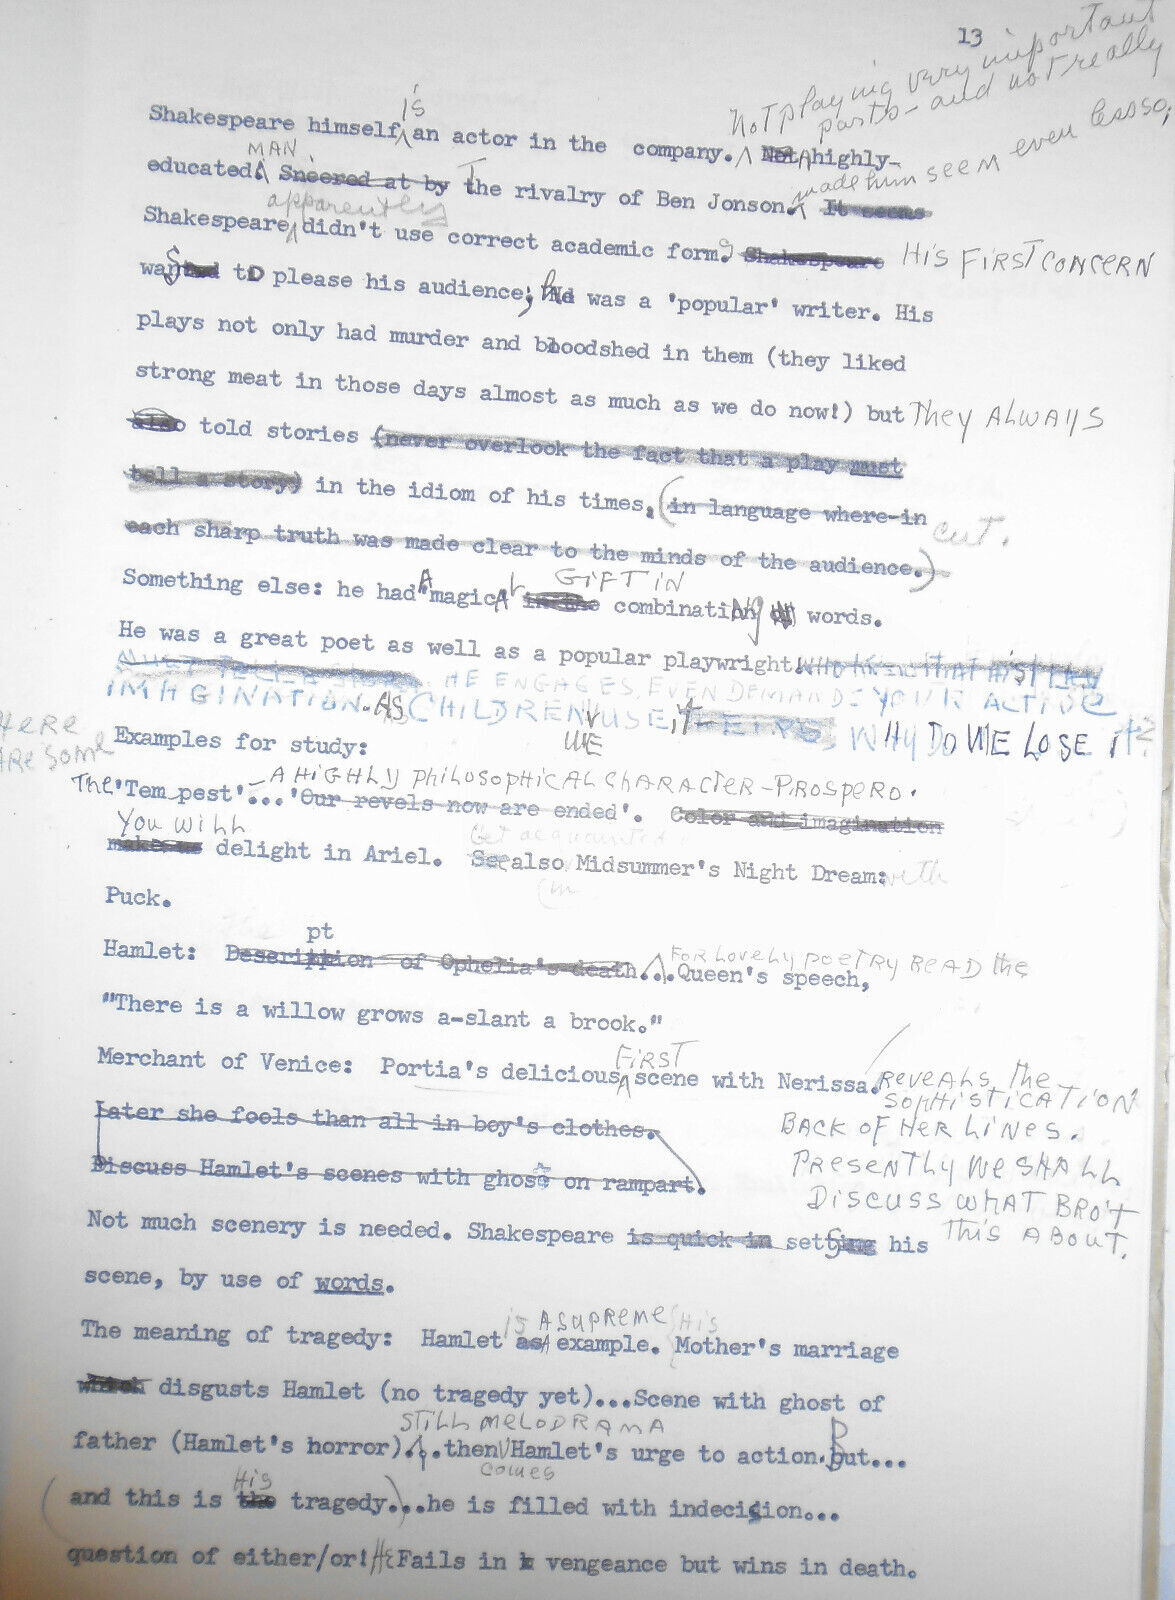 13
Not playing very important
parts - and not really
Shakespeare himself is an actor in the company. Not highly-
made him seem even less so;
educated. MAN Sneered at by The rivalry of Ben Jonson. It seems
Shakespeare apparently didn't use correct academic form. Shakespeare HIS FIRST CONCERN
was to please his audience; he was a 'popular' writer. His
plays not only had murder and bloodshed in them (they liked
strong meat in those days almost as much as we do now!) but THEY ALWAYS
also told stories (never overlook the fact that a play must
tell a story) in the idiom of his times, (in language where-in
each sharp truth was made clear to the minds of the audience.) cut.
Something else: he had A magical GIFT IN in the combinating of words.
He was a great poet as well as a popular playwright. WHO KNEW THAT HIS
MUST TELL A STORY. HE ENGAGES EVEN DEMANDS YOUR ACTIVE
IMAGINATION. AS CHILDREN WE USE IT THEIRS, WHY DO WE LOSE IT?
HERE ARE SOME
Examples for study:
The 'Tem pest' - A HIGHLY PHILOSOPHICAL CHARACTER - PROSPERO. ...'Our revels now are ended'. Color and imagination
YOU WILL makes us delight in Ariel. Get acquainted See also Midsummer's Night Dream: with
Puck.
Hamlet: Description of Ophelia's death... FOR LOVELY POETRY READ the Queen's speech,
"There is a willow grows a-slant a brook."
Merchant of Venice: Portia's delicious FIRST scene with Nerissa. REVEALS THE
SOPHISTICATION
BACK OF HER LINES.
PRESENTLY WE SHALL
DISCUSS WHAT BRO'T
THIS ABOUT.
Later she fools than all in boy's clothes.
Discuss Hamlet's scenes with ghost on rampart.
Not much scenery is needed. Shakespeare is quick in sets his
scene, by use of words.
The meaning of tragedy: Hamlet is as A SUPREME example. HIS Mother's marriage
which disgusts Hamlet (no tragedy yet)...Scene with ghost of
father (Hamlet's horror) STILL MELODRAMA ..then comes Hamlet's urge to action. But...
(and this is the HIS tragedy)...he is filled with indecision...
question of either/or! HE Fails in vengeance but wins in death.